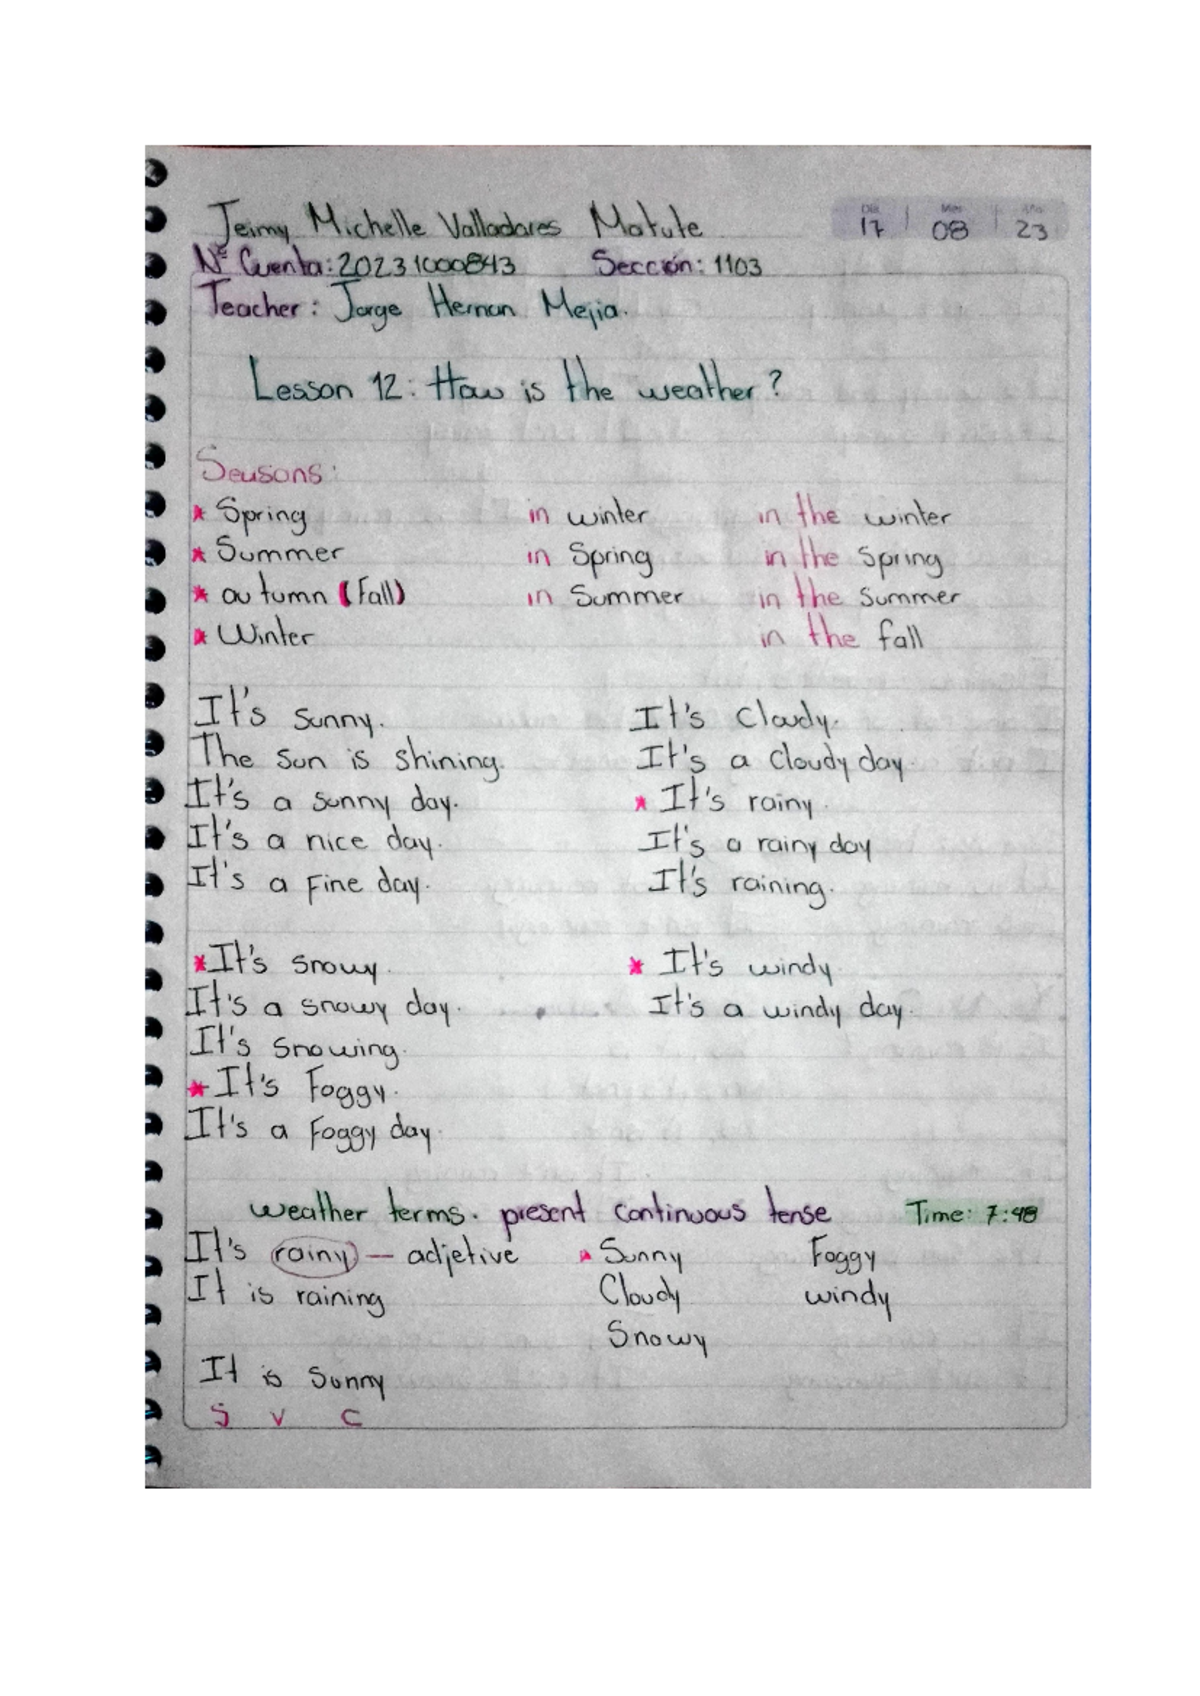 Jeimy Michelle Valladares Matute Día 17 Mes 08 Año 23
Nº Cuenta: 20231000843 Sección: 1103
Teacher: Jorge Hernan Mejia.
Lesson 12: How is the weather?
Seusons:
* Spring in winter in the winter
* Summer in Spring in the Spring
* autumn (Fall) in Summer in the Summer
* Winter in the fall
It's sunny. It's Cloudy.
The sun is shining. It's a Cloudy day.
It's a sunny day. * It's rainy.
It's a nice day. It's a rainy day
It's a Fine day. It's raining.
* It's snowy. * It's windy.
It's a snowy day. It's a windy day.
It's snowing.
* It's Foggy.
It's a Foggy day.
weather terms. present continuous tense Time: 7:48
It's rainy — adjetive * Sunny Foggy
It is raining Cloudy windy
Snowy
It is Sunny
S V C